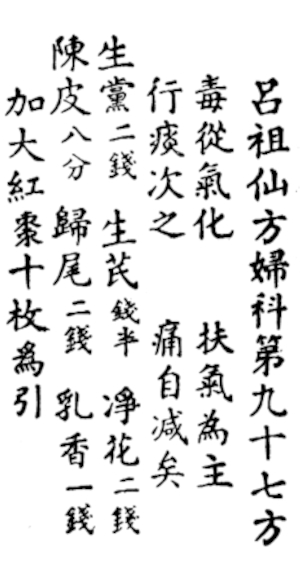 呂祖仙方婦科第九十七方
毒從氣化 扶氣為主
行痰次之 痛自減矣
生黨二錢 生芪錢半 淨花二錢
陳皮八分 歸尾二錢 乳香一錢
加大紅棗十枚為引